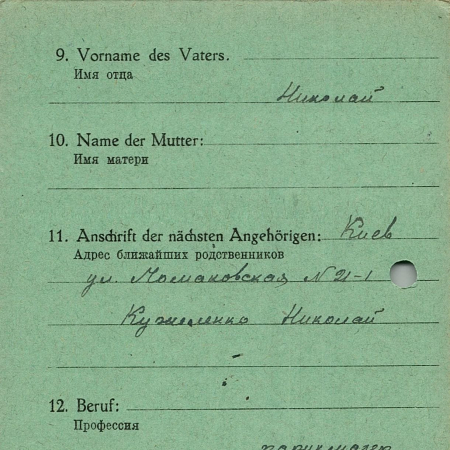 9. Vorname des Vaters.
Имя отца
Николай
10. Name der Mutter:
Имя матери
11. Anschrift der nächsten Angehörigen: Киев
Адрес ближайших родственников
ул. N 21-1
Николай
12. Beruf:
Профессия